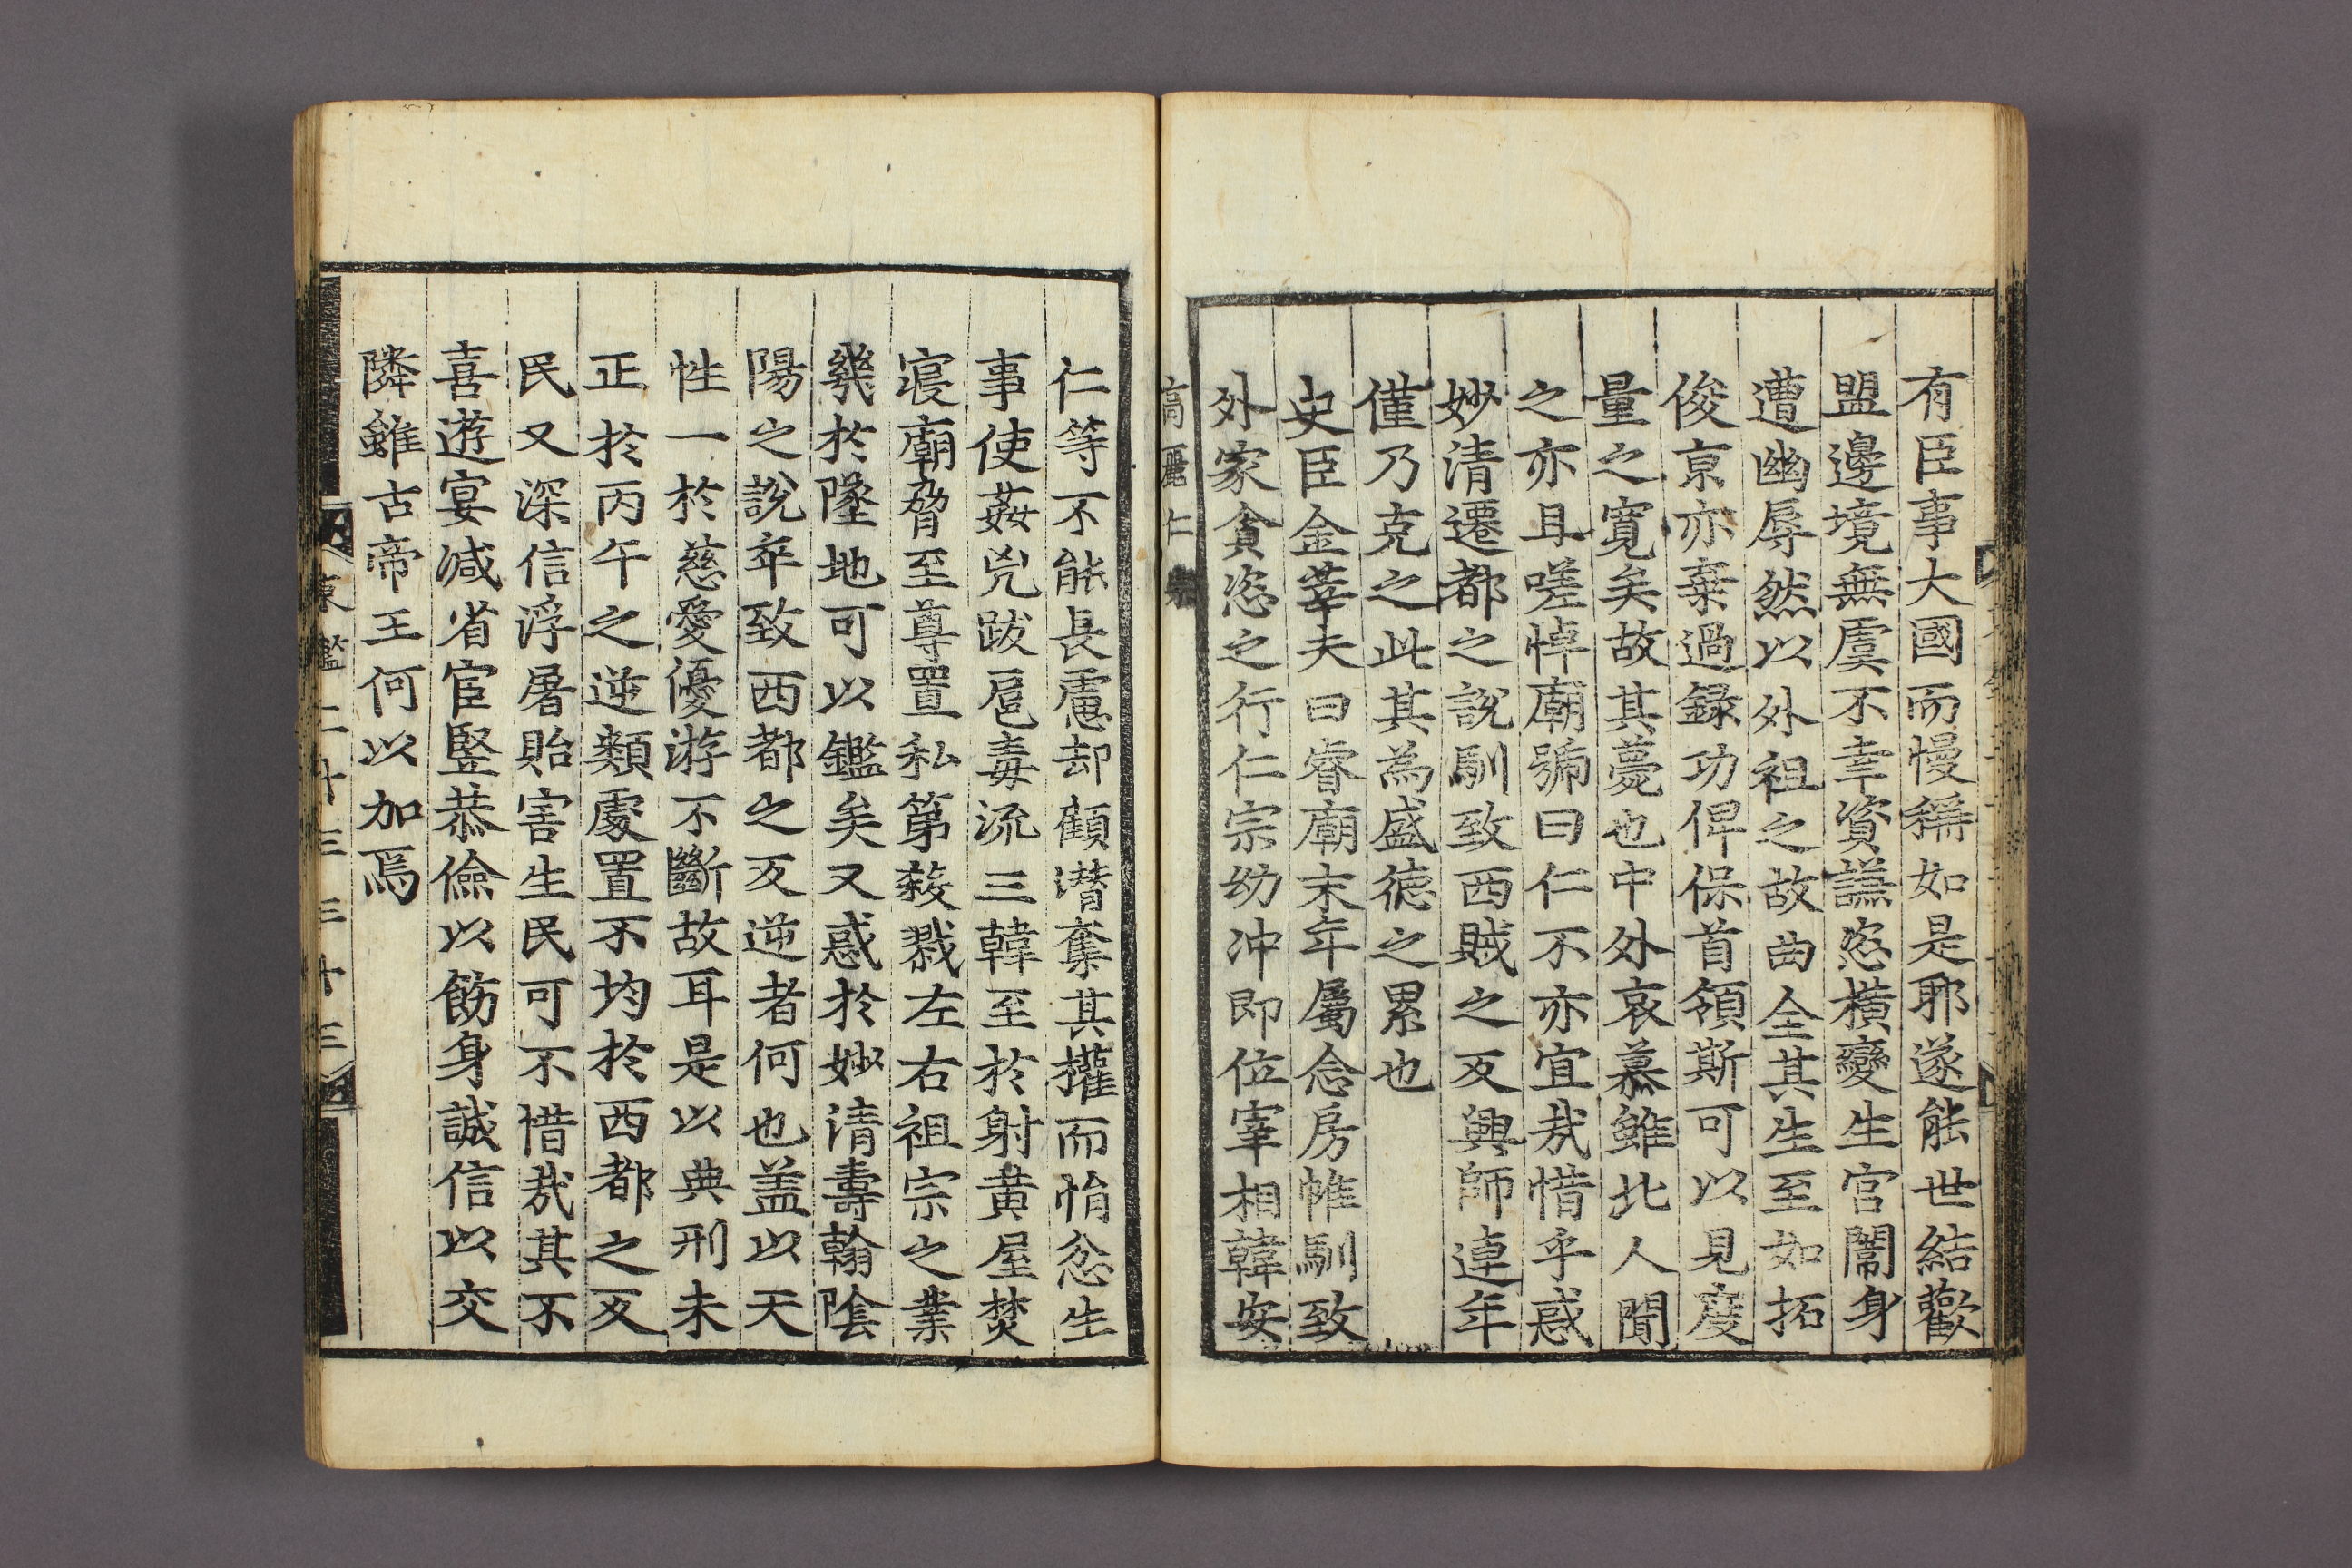 有臣事大國而慢稱如是耶遂能世結歡
盟邊境無虞不幸資謙恣橫變生宮闈身
遭幽辱然以外祖之故曲全其生至如拓
俊京亦棄過録功俾保首領斯可以見度
量之寬矣故其薨也中外哀慕雖北人聞
之亦且嗟悼廟號曰仁不亦宜㢤惜乎惑
妙清遷都之說馴致西賊之反興師連年
僅乃克之此其為盛德之累也
史臣金莘夫曰睿廟末年屬念房帷馴致
外家貪恣之行仁宗幼冲即位宰相韓安
高麗仁宗
仁等不能長慮却顧潜奪其權而悁忿生
事使姦兇跋扈毒流三韓至於射黄屋焚
寢廟脅至尊置私第殺戮左右祖宗之業
幾於墜地可以鑑矣又惑於妙清壽翰陰
陽之說卒致西都之反逆者何也盖以天
性一於慈愛優游不斷故耳是以典刑未
正於丙午之逆類處置不均於西都之反
民又深信浮屠貽害生民可不惜㢤其不
喜遊宴減省宦竪恭儉以飭身誠信以交
隣雖古帝王何以加焉
東鑑二十三 三十三